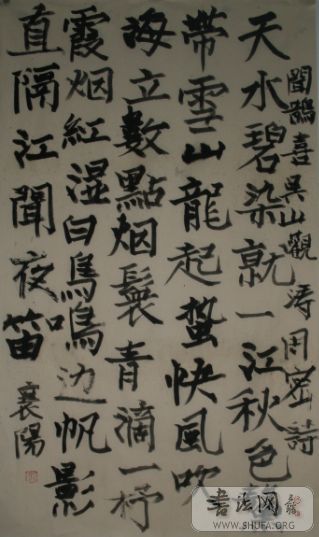 聞鵲喜吳山觀涛周密詩
天水碧染就一江秋色鰲
帶雪山龍起蟄快風吹
海立數點烟鬟青滴一杼
霞烟紅湿白鳥鳴边帆影
直隔江聞夜笛
襄陽
书法网
WWW.SHUFA.ORG